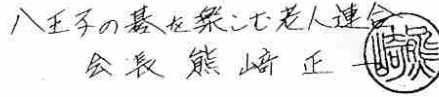 八王子の碁を楽しむ老人連合
会長 熊﨑 正一
熊﨑